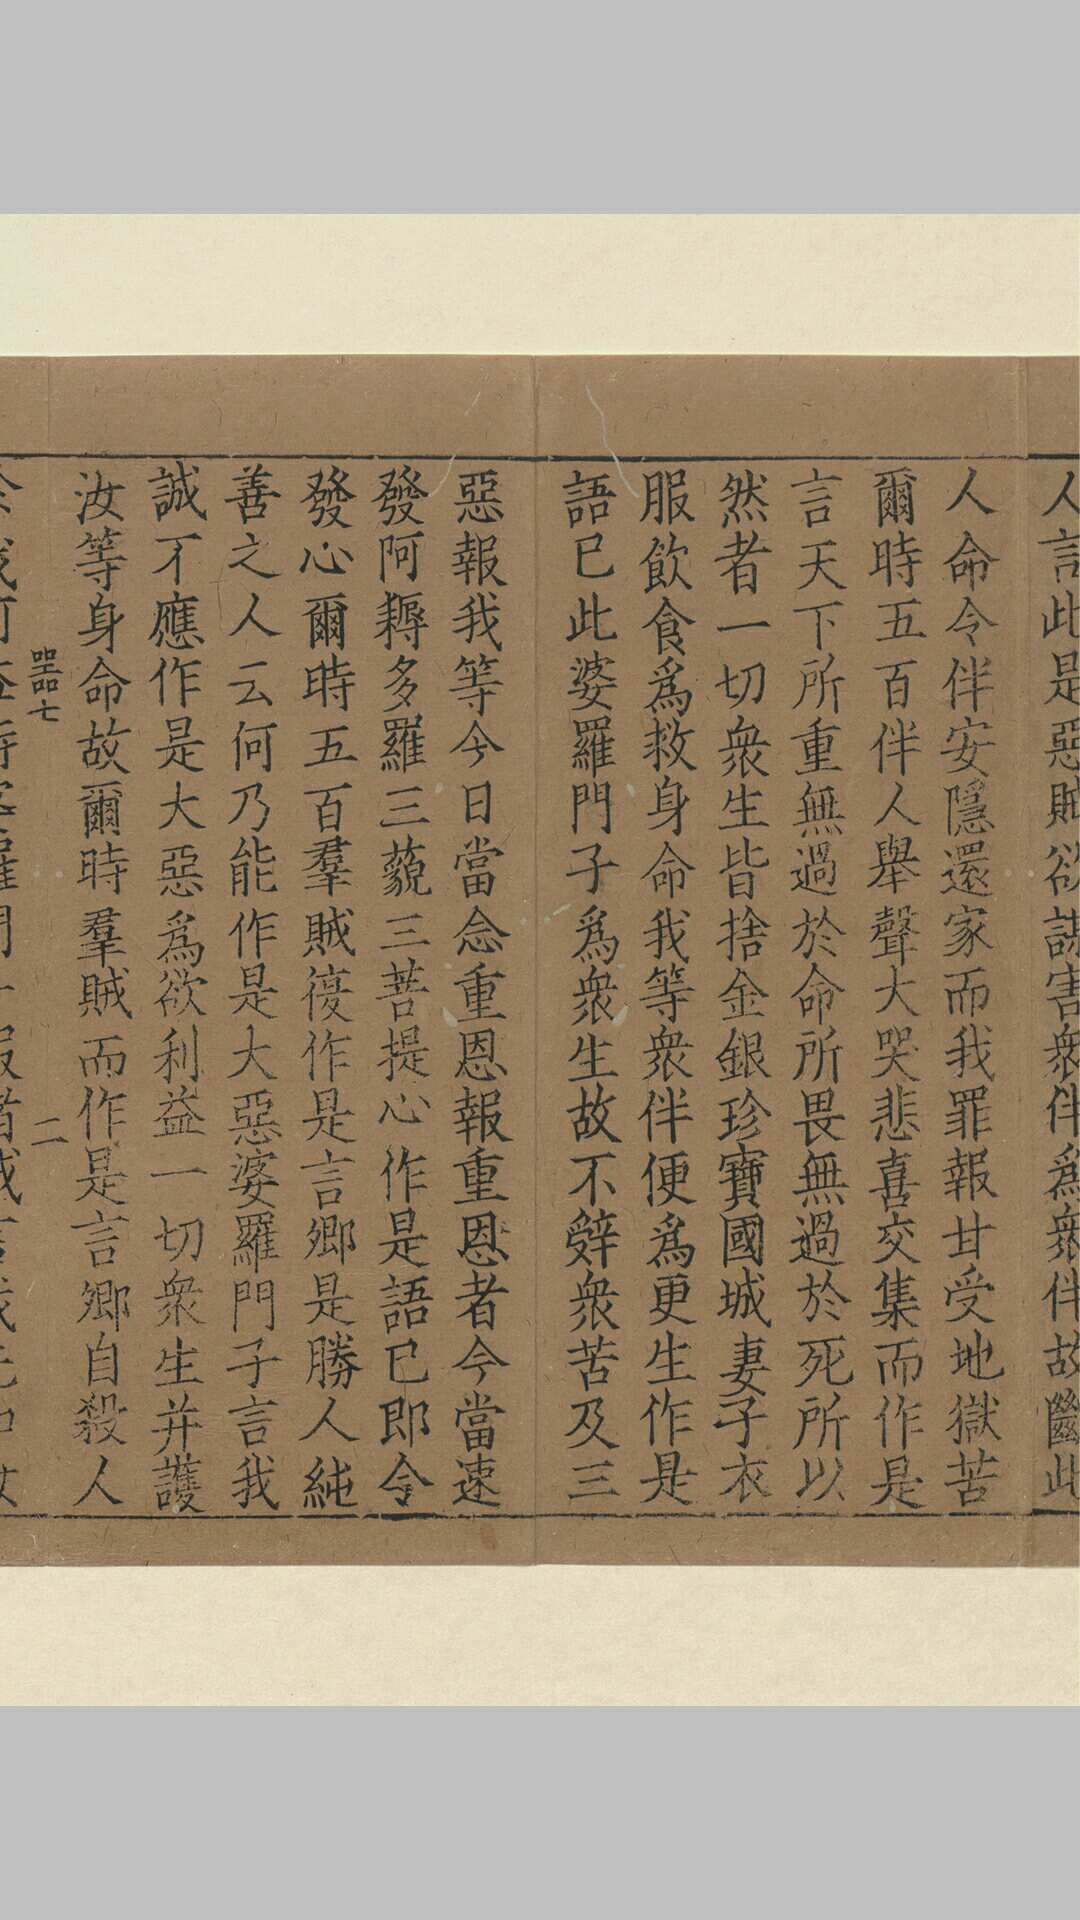 人言此是惡賊欲謀害衆伴爲衆伴故斷此
人命令伴安隱還家而我罪報甘受地獄苦
爾時五百伴人舉聲大哭悲喜交集而作是
言天下所重無過於命所畏無過於死所以
然者一切衆生皆捨金銀珍寶國城妻子衣
服飲食爲救身命我等衆伴便爲更生作是
語已此婆羅門子爲衆生故不辤衆苦及三
惡報我等今日當念重恩報重恩者今當速
發阿耨多羅三藐三菩提心作是語已即令
發心爾時五百羣賊復作是言卿是勝人純
善之人云何乃能作是大惡婆羅門子言我
誠不應作是大惡爲欲利益一切衆生并護
汝等身命故爾時羣賊而作是言卿自殺人
器七 二